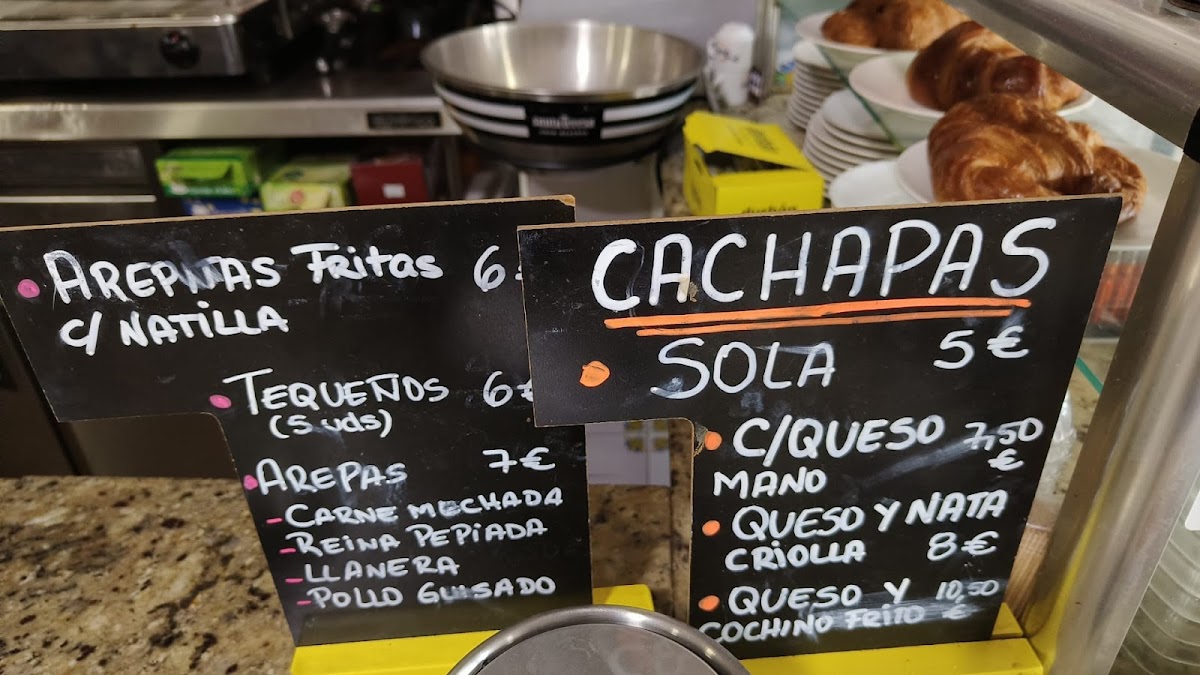 AREPITAS FRITAS 6
C/ NATILLA
TEQUEÑOS 6€
(5 uds)
AREPAS 7€
- CARNE MECHADA
- REINA PEPIADA
- LLANERA
- POLLO GUISADO
CACHAPAS
SOLA 5€
C/QUESO 7,50
MANO €
QUESO Y NATA
CRIOLLA 8€
QUESO Y 10,50
COCHINO FRITO €